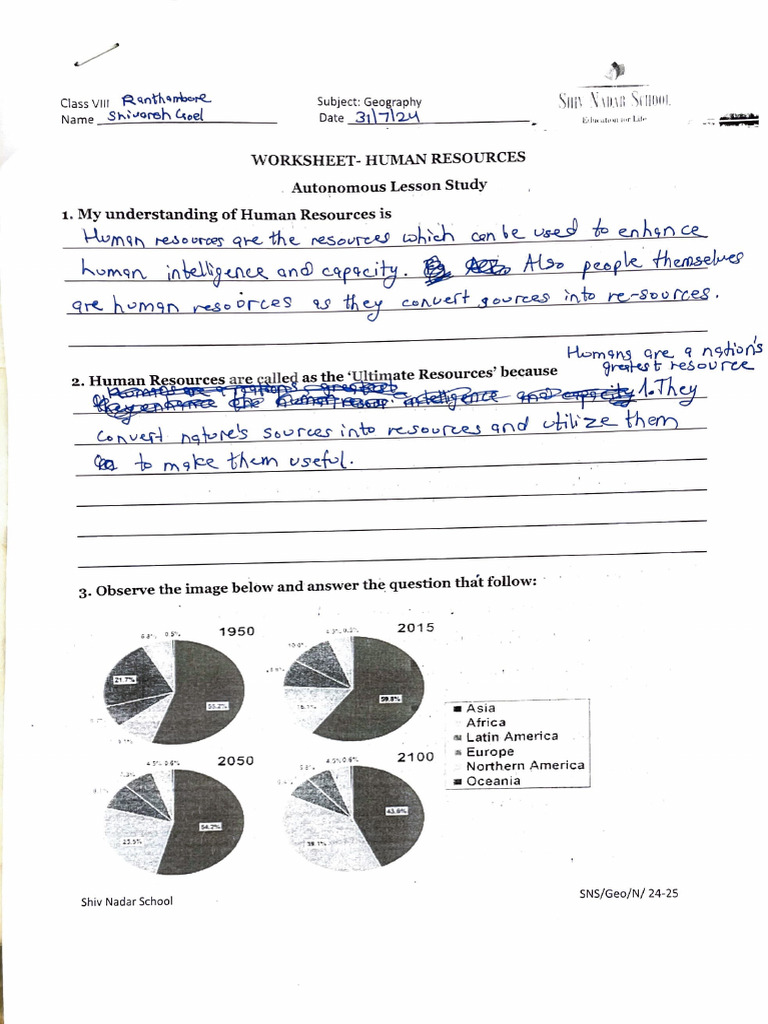 Class VIII Ranthambore
Subject: Geography
SHIV NADAR SCHOOL
Name Shivansh Goel
Date 31/7/24
Education for Life
WORKSHEET- HUMAN RESOURCES
Autonomous Lesson Study
1. My understanding of Human Resources is
Human resources are the resources which can be used to enhance
human intelligence and capacity. Also people themselves
are human resources as they convert sources into re-sources.
Humans are a nation's
2. Human Resources are called as the 'Ultimate Resources' because greatest resource
1. They
convert nature's sources into resources and utilize them
to make them useful.
3. Observe the image below and answer the question that follow:
1950
2015
0.5%
21.7%
55.2%
59.8%
Asia
Africa
Latin America
Europe
Northern America
Oceania
2050
2100
4.5% 0.6%
54.2%
43.6%
Shiv Nadar School
SNS/Geo/N/ 24-25